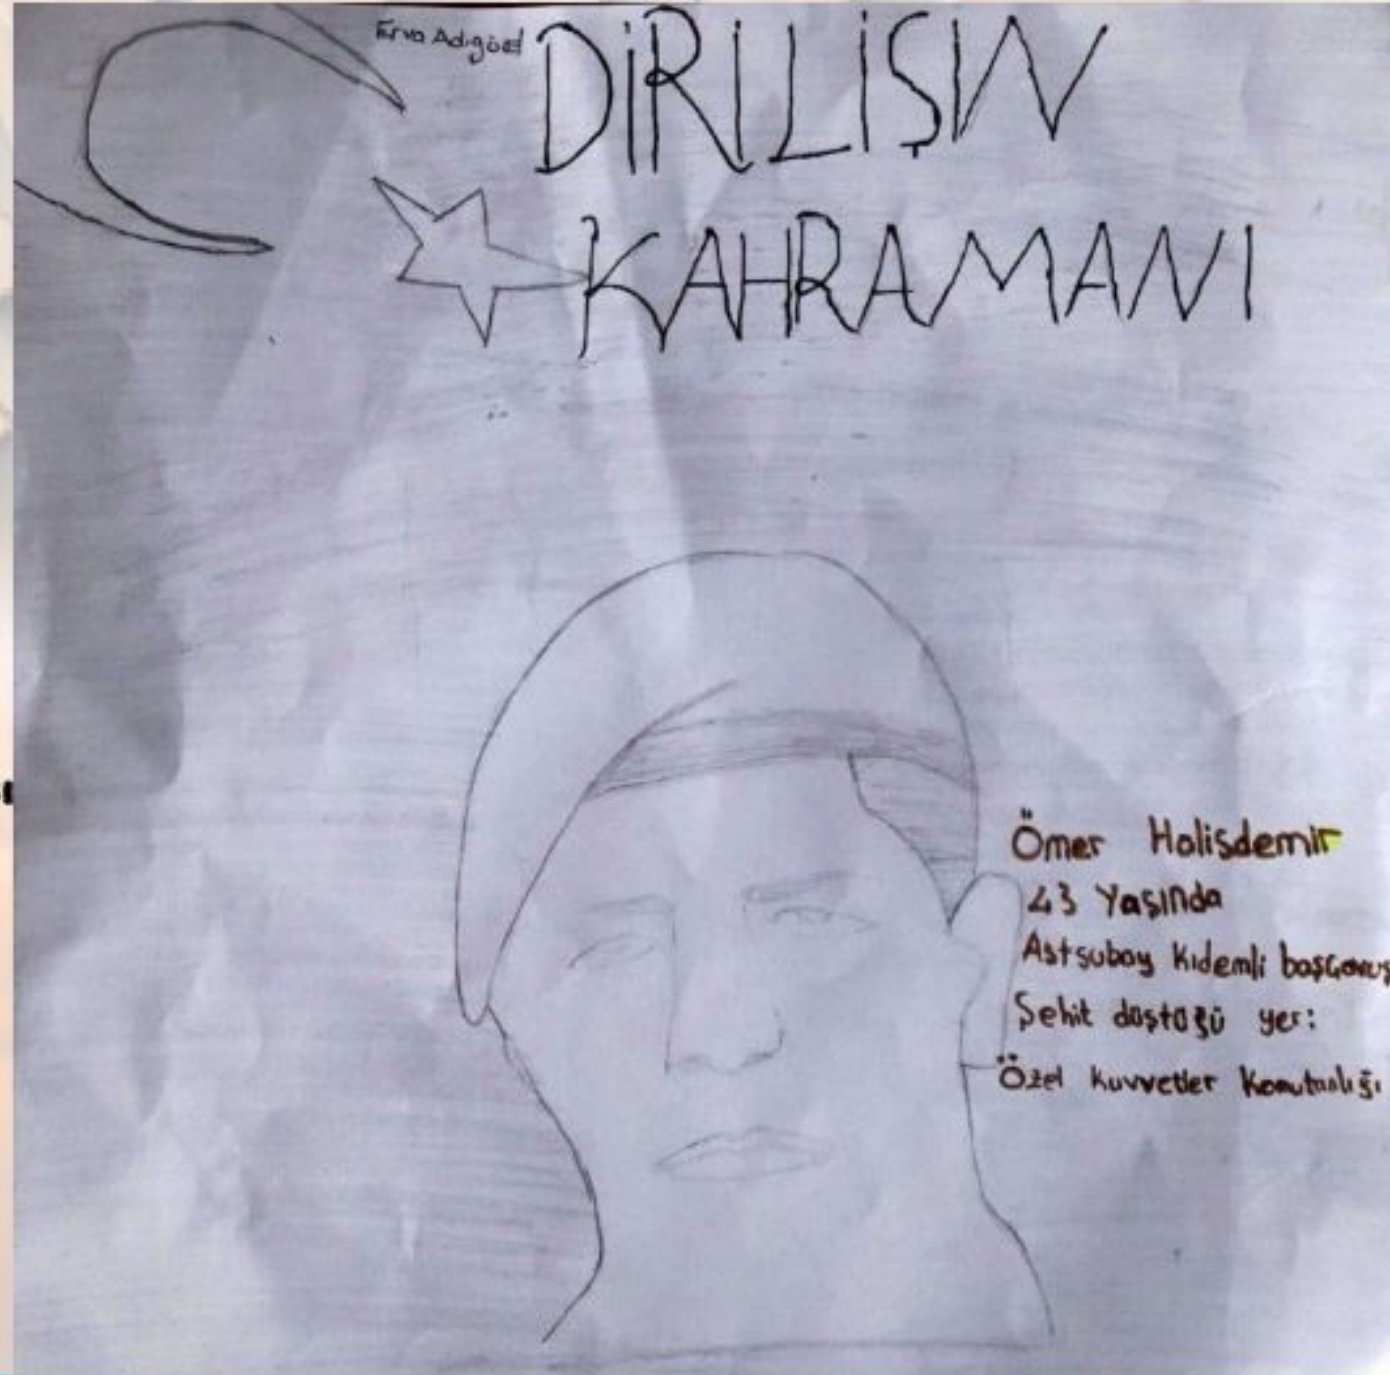 Erva Adıgüzel
DİRİLİŞİN
KAHRAMANI
Ömer Halisdemir
43 Yaşında
Astsubay kıdemli başçavuş
Şehit düştüğü yer:
Özel kuvvetler Komutanlığı